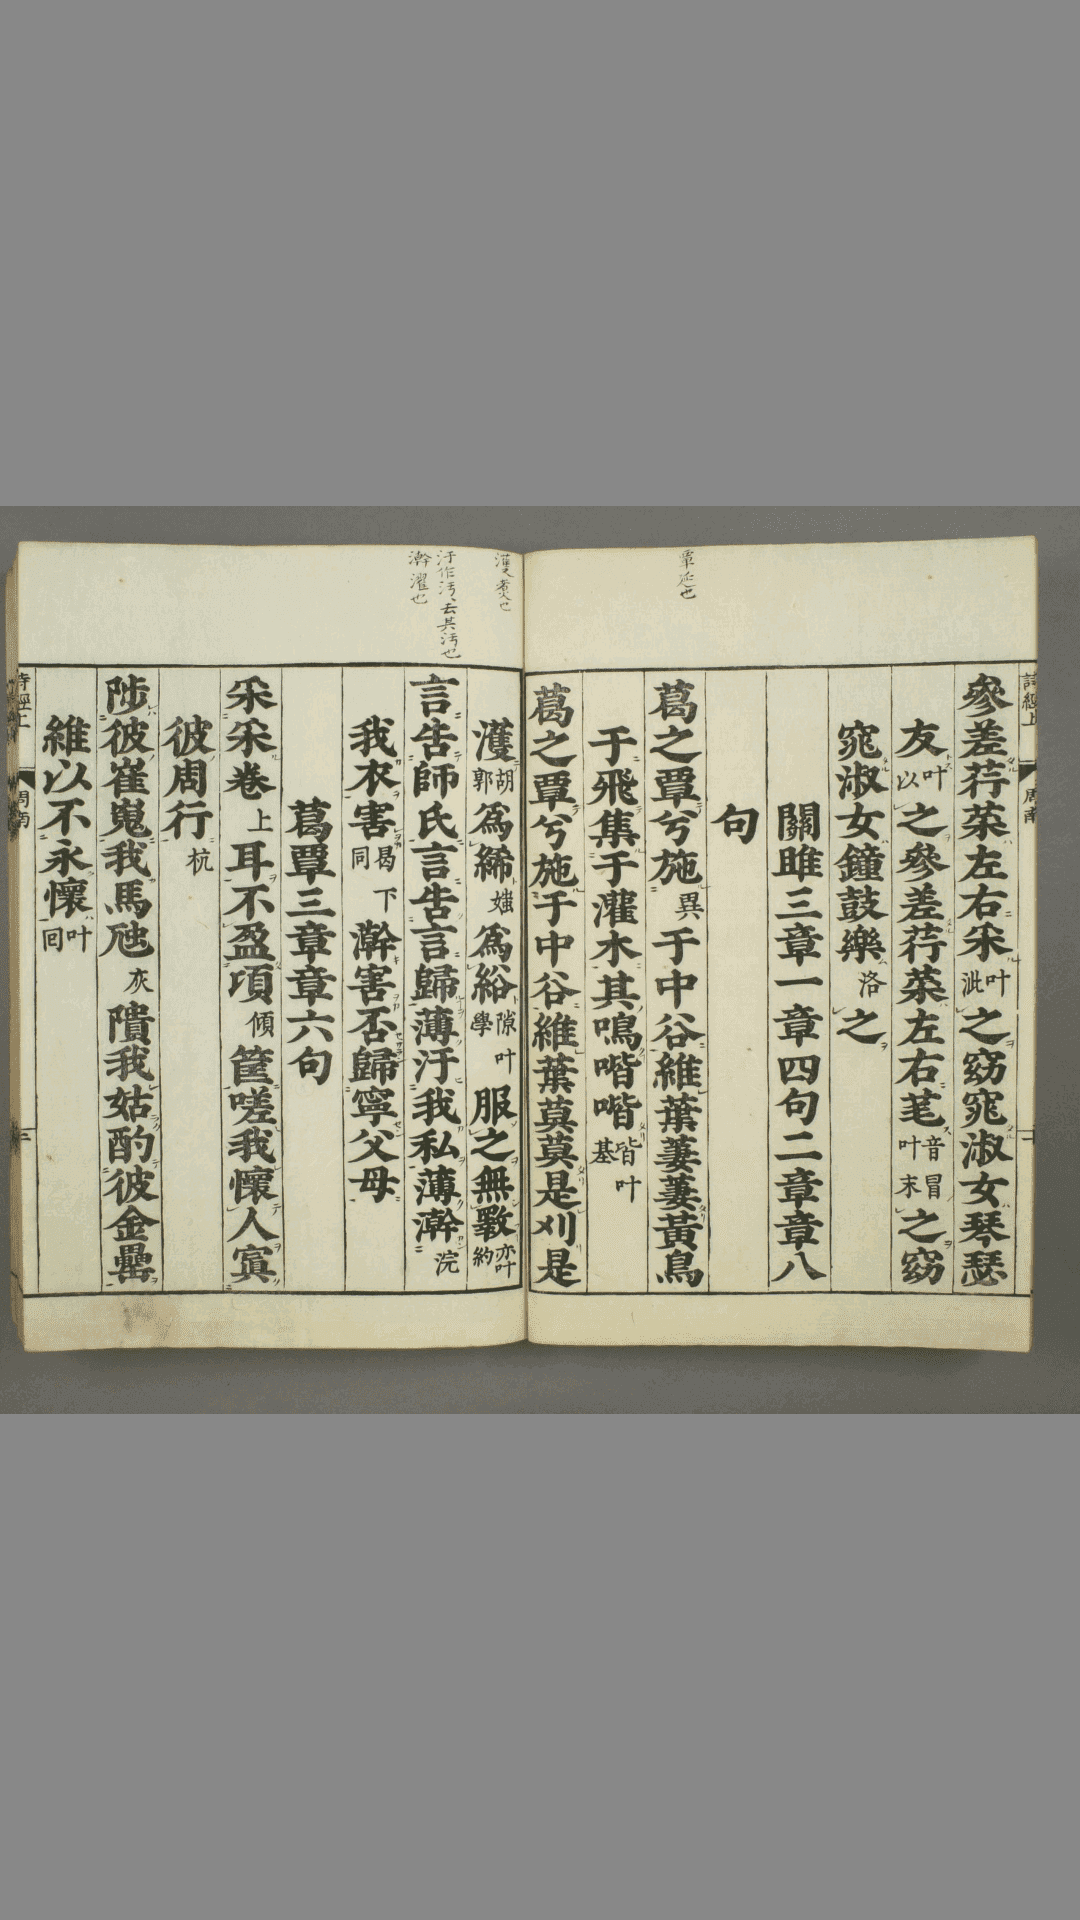 覃延也
詩經上
周南
參差荇菜左右采叶泚之窈窕淑女琴瑟
友叶以之參差荇菜左右芼音冒叶末之窈
窕淑女鐘鼓樂洛之
關雎三章一章四句二章章八
句
葛之覃兮施異于中谷維葉萋萋黃鳥
于飛集于灌木其鳴喈喈皆叶基
葛之覃兮施于中谷維葉莫莫是刈是
濩煮也
汙作汚、去其汚也
澣濯也
濩胡郭爲絺媸爲綌隙叶學服之無斁亦叶約
言告師氏言告言歸薄汙我私薄澣浣
我衣害曷同下澣害否歸寧父母
葛覃三章章六句
采采卷上耳不盈頃傾筐嗟我懷人寘
彼周行杭
陟彼崔嵬我馬虺灰隤我姑酌彼金罍
維以不永懷叶回
詩經上
周南